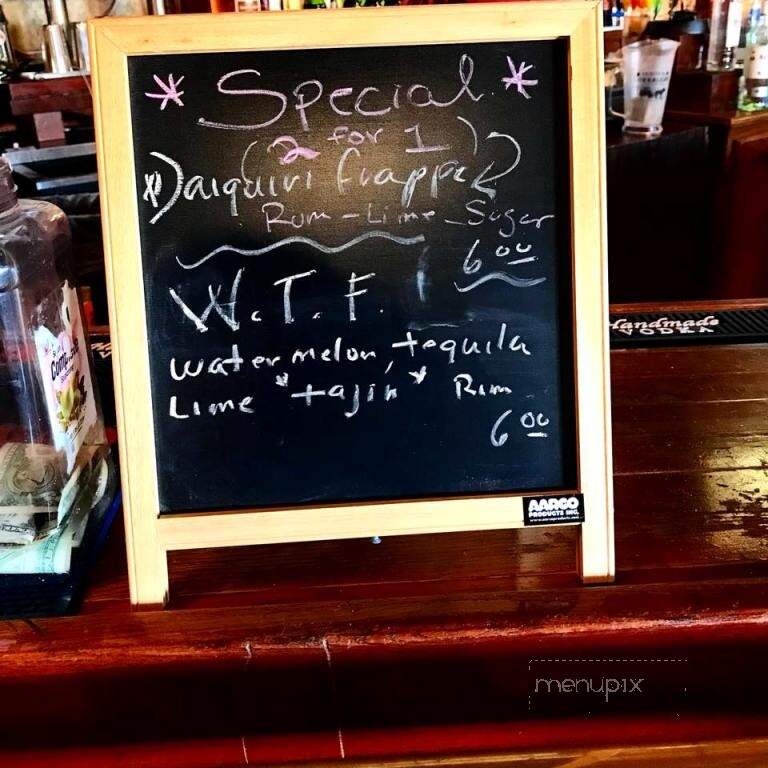 * Special *
(2 for 1)
Daiquiri frappe
Rum - Lime - Sugar
6 00
W.T.F.
watermelon, tequila
Lime *tajin* Rim
6 00
AARCO
PRODUCTS INC.
Handmade
VODKA
menupix